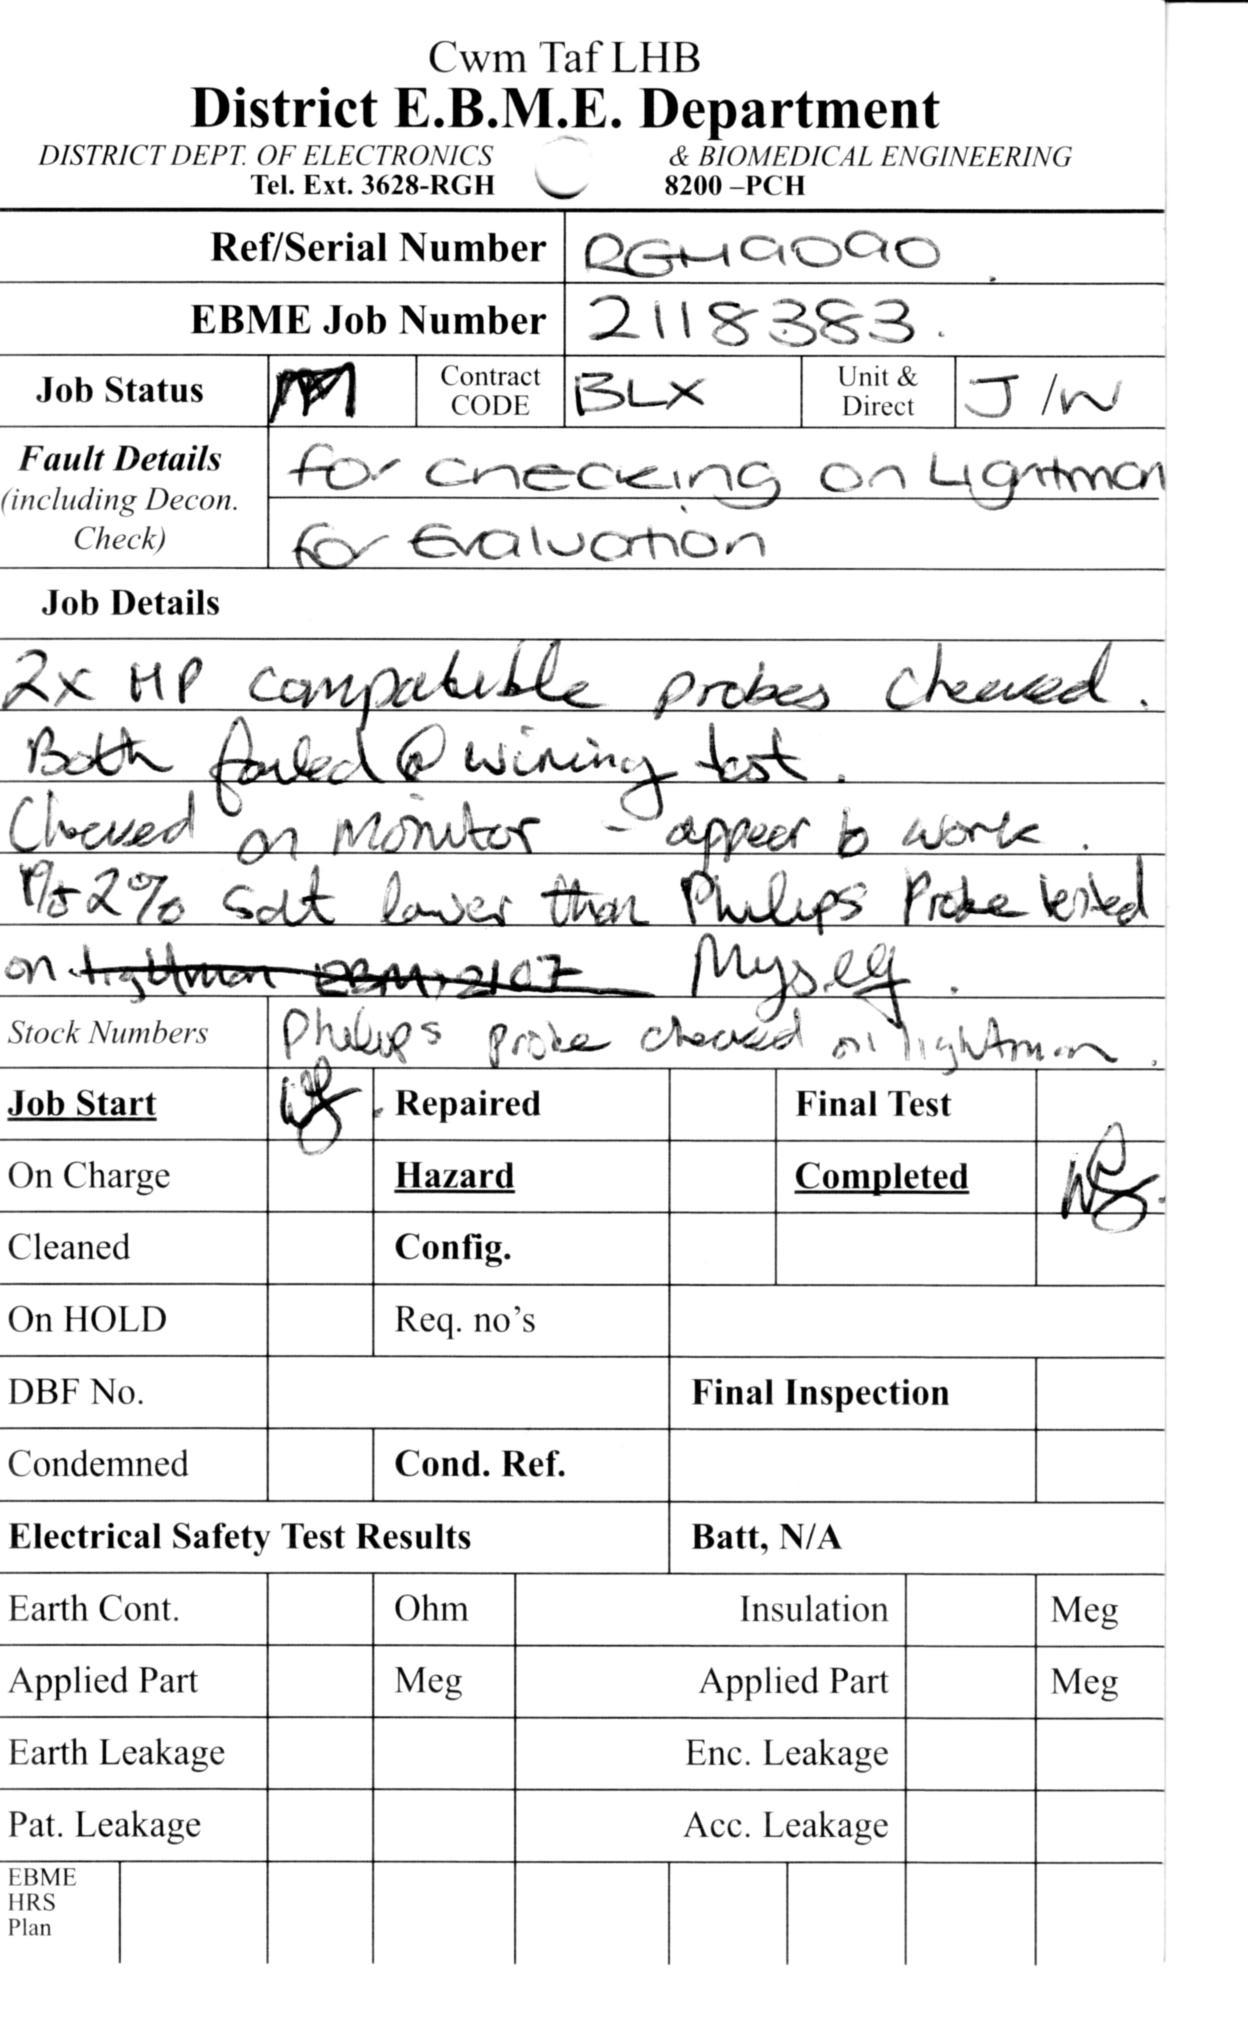 Cwm Taf LHB
District E.B.M.E. Department
DISTRICT DEPT. OF ELECTRONICS & BIOMEDICAL ENGINEERING
Tel. Ext. 3628-RGH 8200 –PCH
Ref/Serial Number RGH9090
EBME Job Number 2118383.
Job Status Contract CODE BLX Unit & Direct J/W
Fault Details for checking on Lightman
(including Decon. Check) for Evaluation
Job Details
2x HP compatible probes checked.
Both failed @ wiring test.
Checked on Monitor - appear to work.
2% Sat lower than Philips Probe tested
on Myself.
Stock Numbers Philips probe checked on lightman.
Job Start Repaired Final Test
On Charge Hazard Completed
Cleaned Config.
On HOLD Req. no's
DBF No. Final Inspection
Condemned Cond. Ref.
Electrical Safety Test Results Batt, N/A
Earth Cont. Ohm Insulation Meg
Applied Part Meg Applied Part Meg
Earth Leakage Enc. Leakage
Pat. Leakage Acc. Leakage
EBME
HRS
Plan